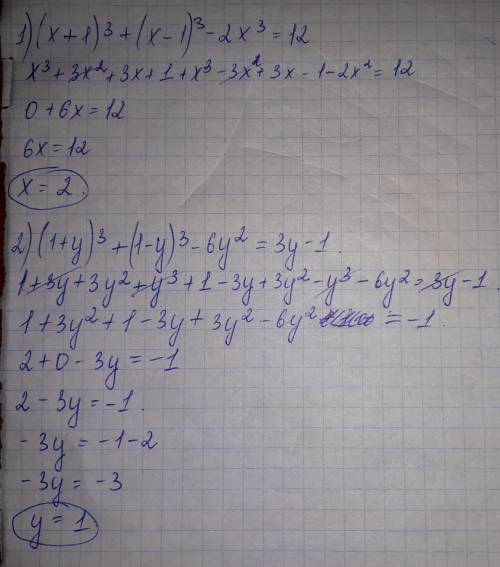 1) (x+1)³+(x-1)³-2x³=12
x³+3x²+3x+1+x³-3x²+3x-1-2x²=12
0+6x=12
6x=12
x=2.
2) (1+y)³+(1-y)³-6y²=3y-1.
1+3y+3y²+y³+1-3y+3y²-y³-6y²=3y-1.
1+3y²+1-3y+3y²-6y² =-1.
2+0-3y=-1
2-3y=-1.
-3y=-1-2
-3y=-3
y=1